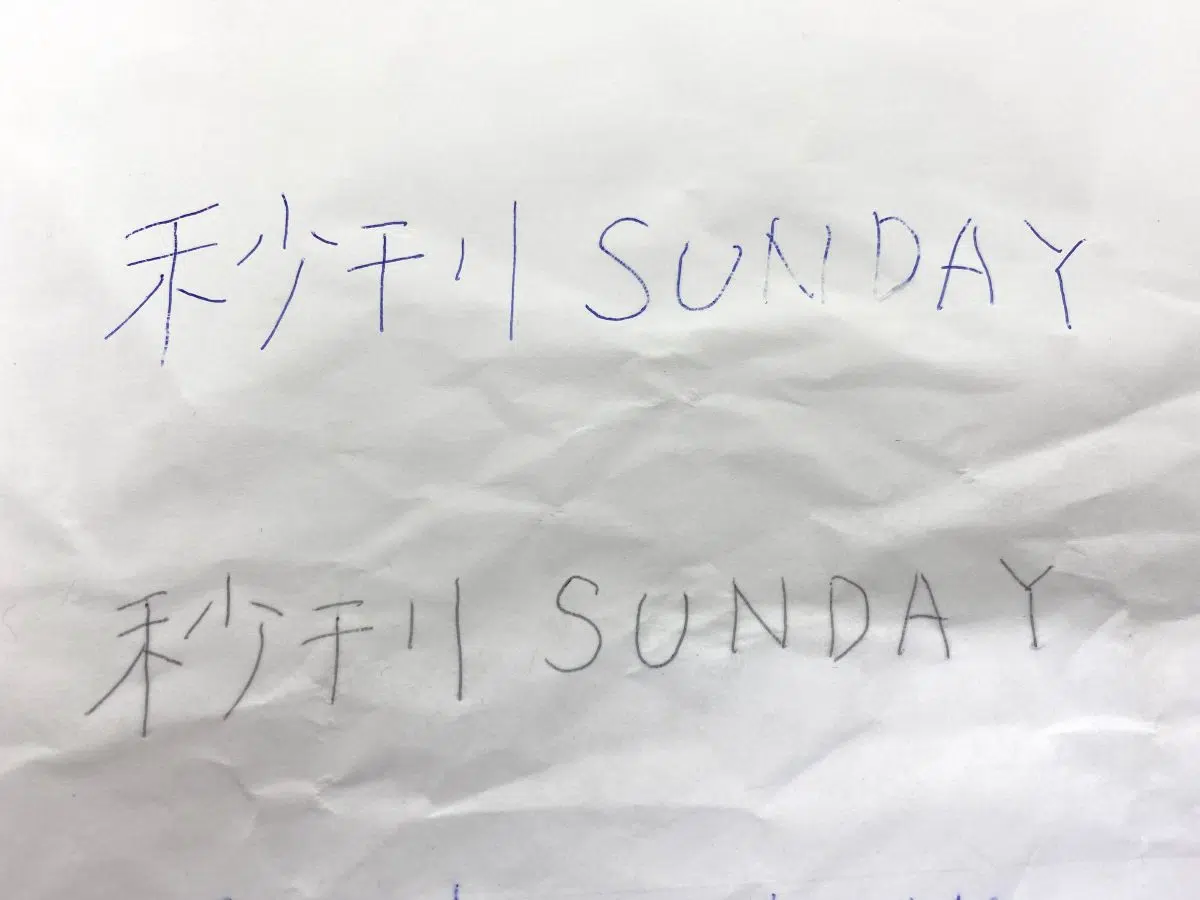 秒刊SUNDAY
秒刊 SUNDAY